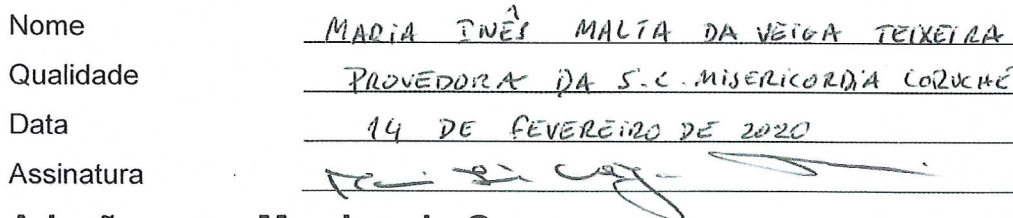 Nome MARIA INÊS MALTA DA VEIGA TEIXEIRA
Qualidade PROVEDORA DA S.C. MISERICORDIA CORUCHE
Data 14 DE FEVEREIRO DE 2020
Assinatura